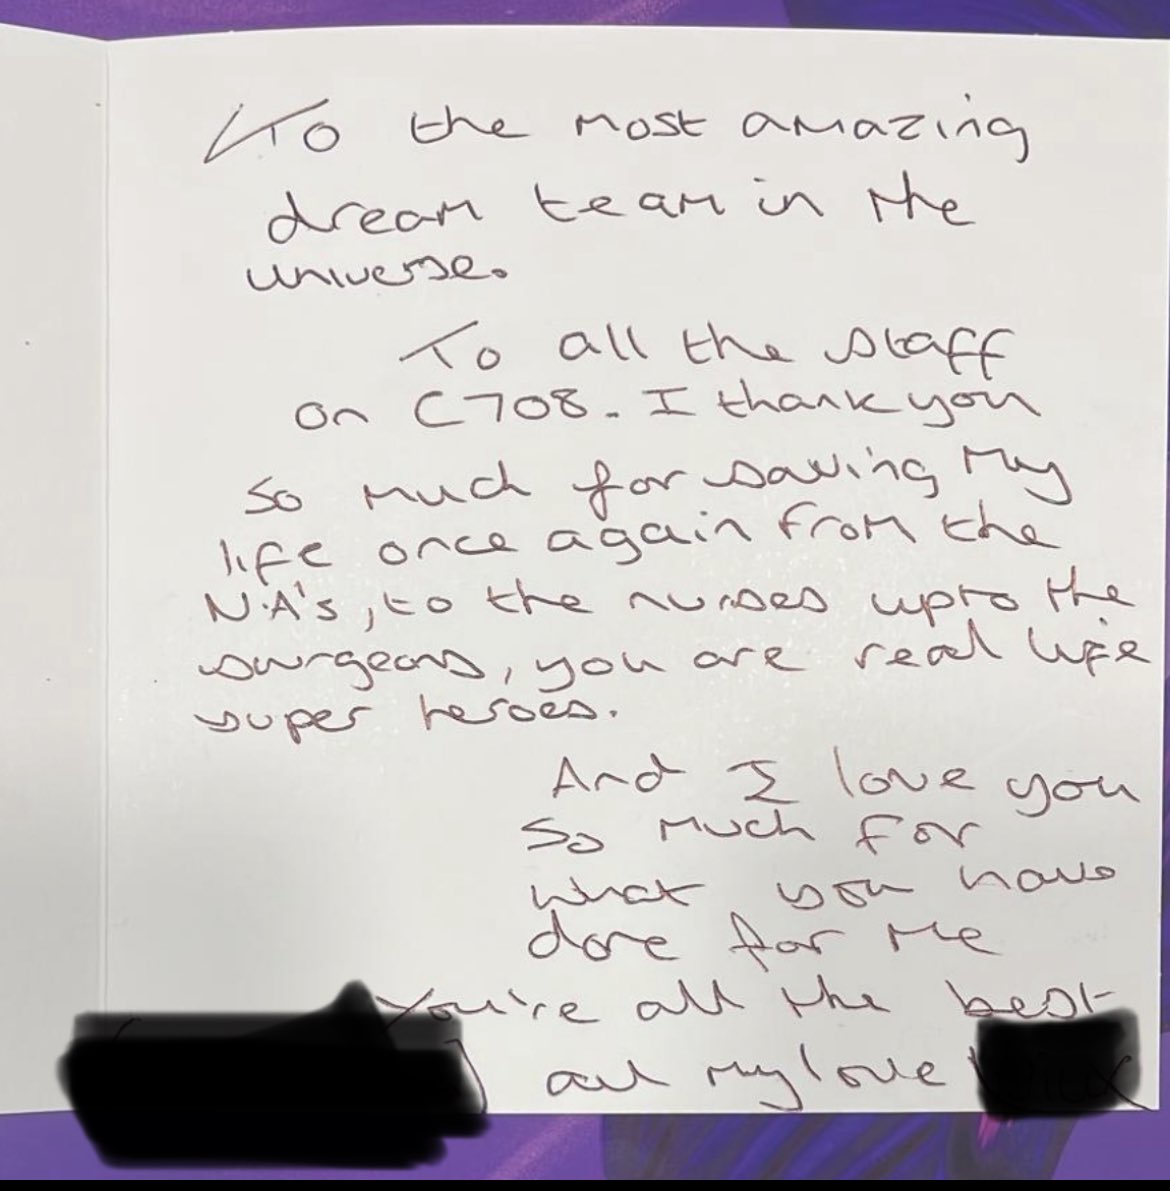 To the most amazing
dream team in the
universe.
To all the staff
on C708. I thank you
so much for saving my
life once again from the
N.A's, to the nurses upto the
surgeons, you are real life
super heroes.
And I love you
so much for
what you have
done for me
You're all the best
all my love